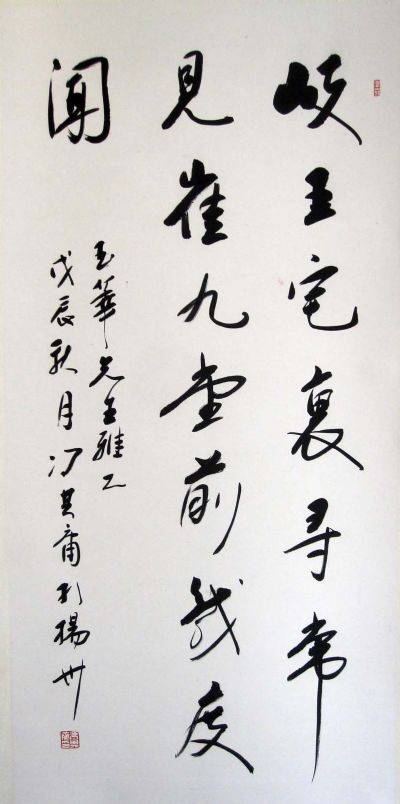 岐王宅裏尋常
見崔九堂前幾度
聞
玉華先生雅正
戊辰秋月馮其庸於楊州